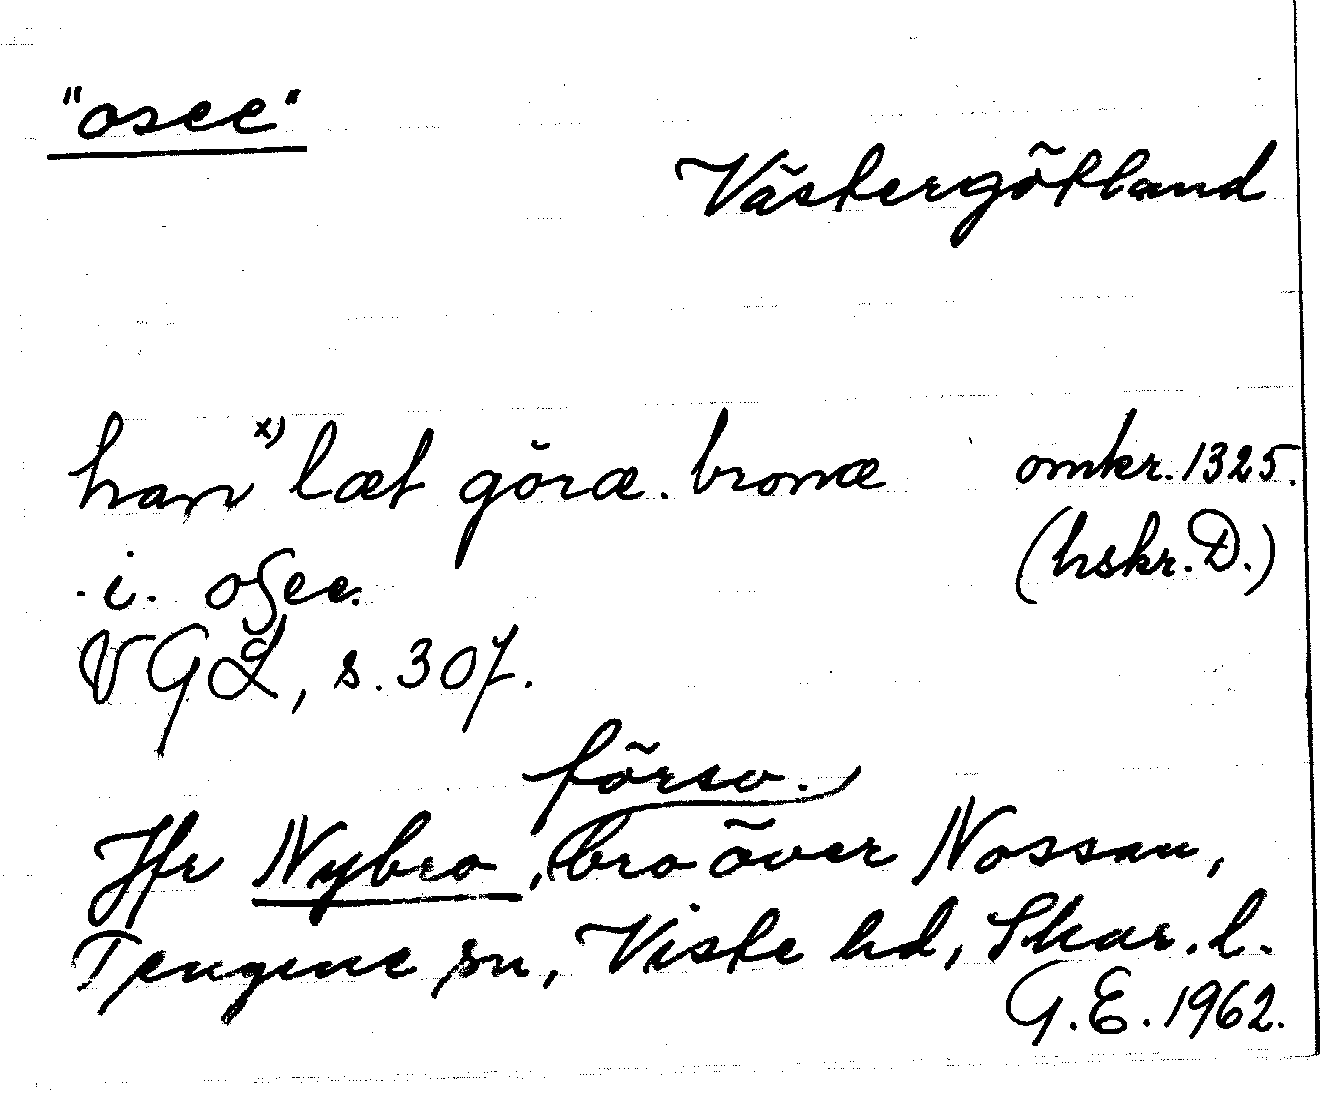 "osee"
Västergötland
han x) læt göræ. bronæ omkr. 1325.
.i. osee. (hskr. D.)
VGL, s. 307.
försv.
Jfr Nybro, bro över Nossan,
Tengene sn, Viste hd, Skar. l.
G. E. 1962.